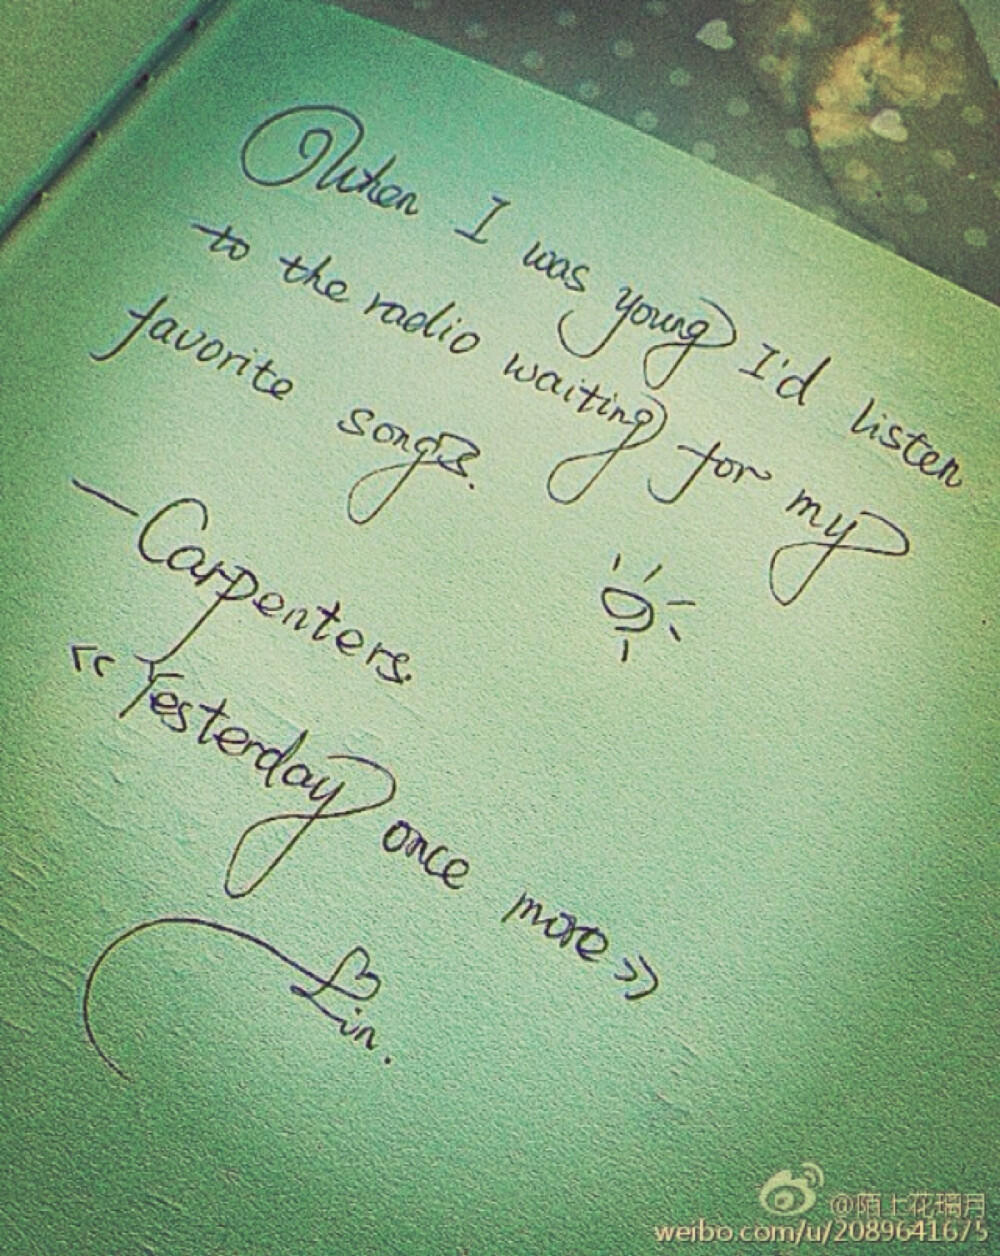 When I was young I'd listen
to the radio waiting for my
favorite songs.
—Carpenters.
《Yesterday once more》
Lin.
@陌上花璃月
weibo.com/u/2089641675